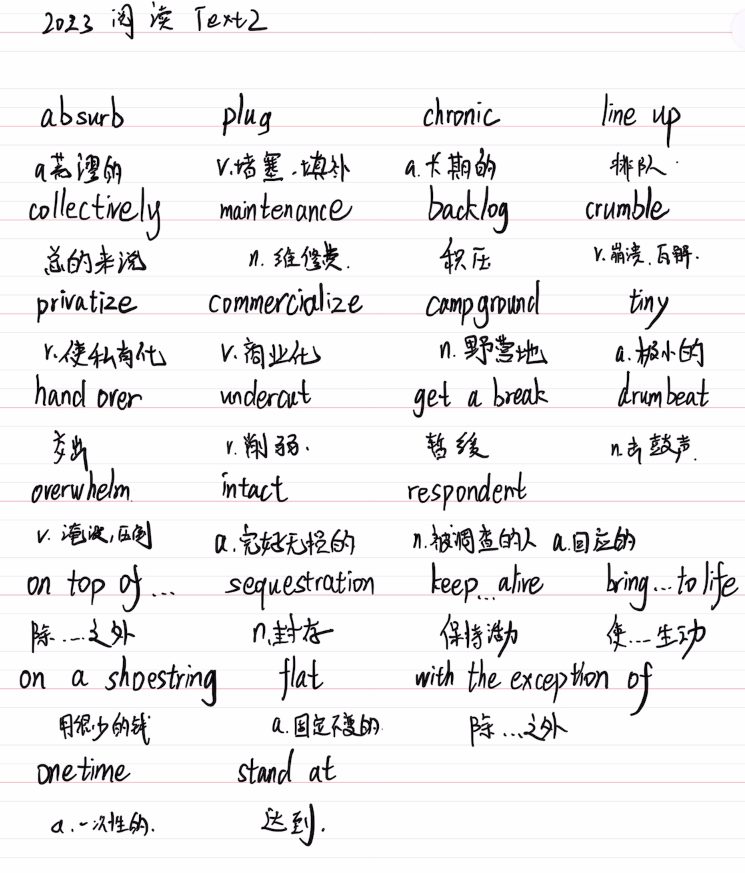 2023 阅读 Text2
absurb plug chronic line up
a荒谬的 v.堵塞.填补 a.长期的 排队.
collectively maintenance backlog crumble
总的来说 n.维修费. 积压 v.崩溃.瓦解.
privatize commercialize campground tiny
v.使私有化 v.商业化 n.野营地 a.极小的
hand over undercut get a break drumbeat
交出 v.削弱. 暂缓 n击鼓声.
overwhelm intact respondent
v.淹没,压倒 a.完好无损的 n.被调查的人 a.回应的
on top of... sequestration keep...alive bring...to life
除...之外 n.封存 保持活力 使...生动
on a shoestring flat with the exception of
用很少的钱 a.固定不变的 除...之外
onetime stand at
a.一次性的. 达到.